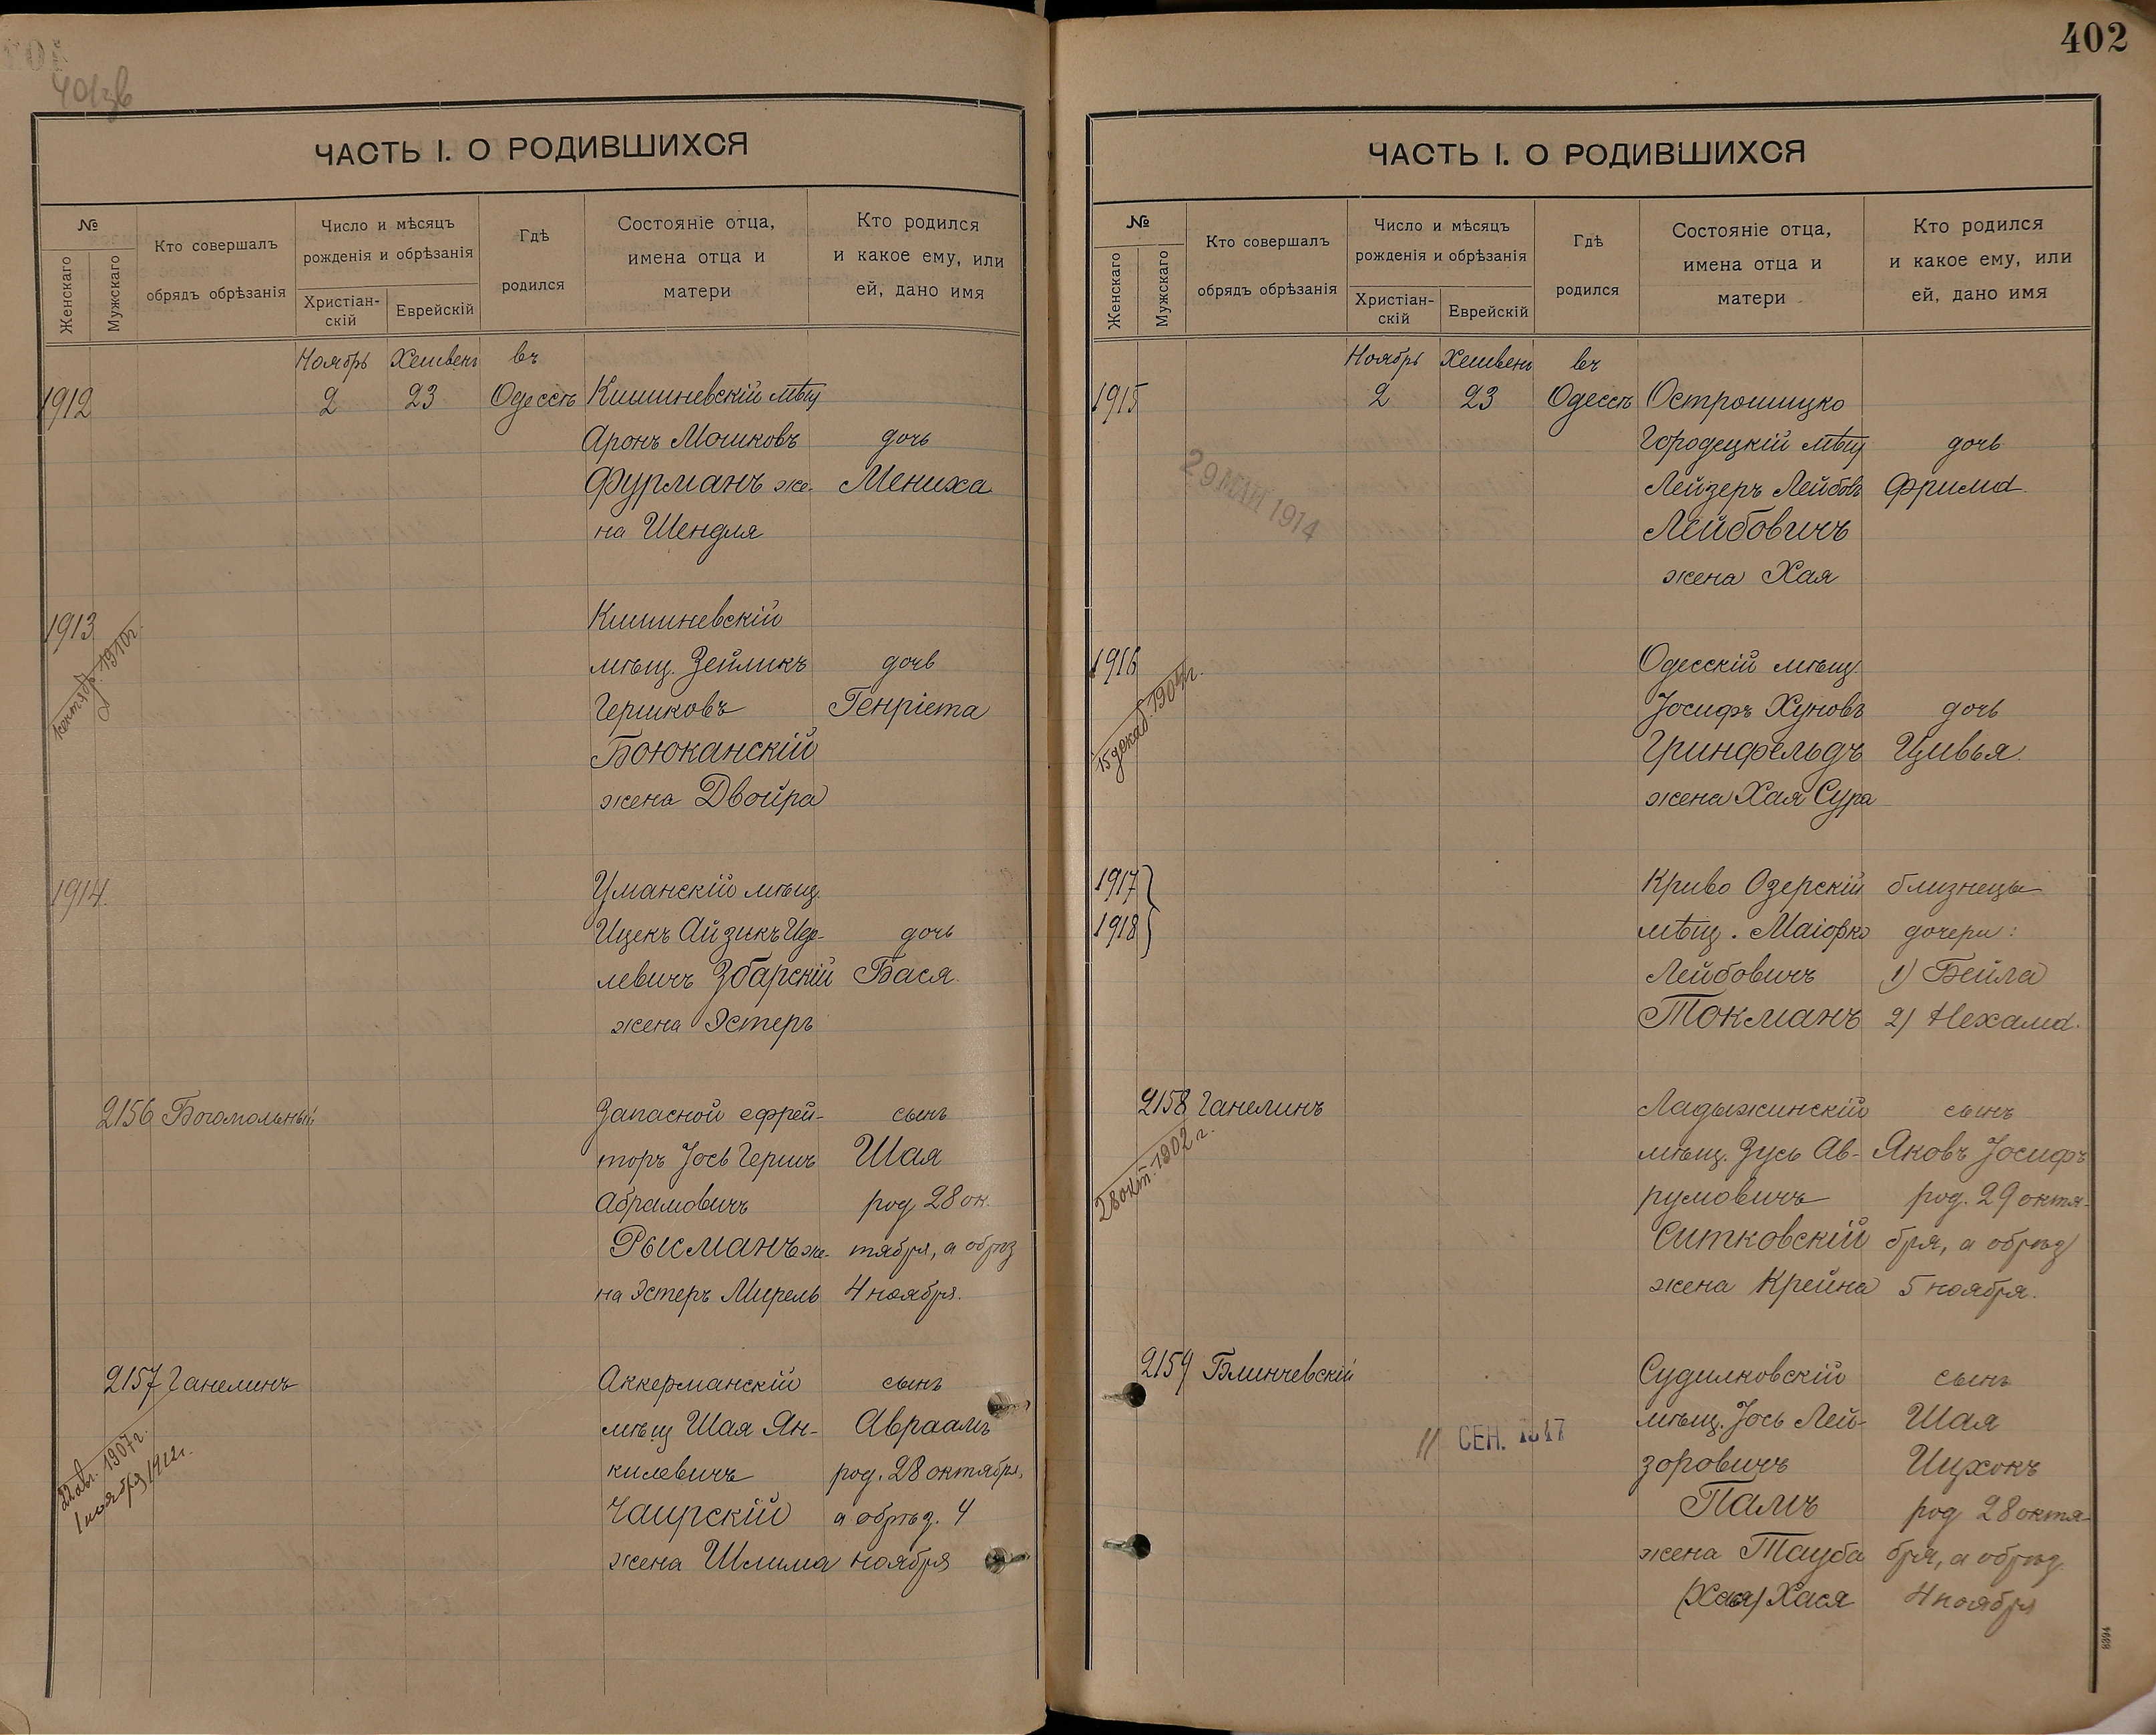 401 зв
ЧАСТЬ I. О РОДИВШИХСЯ
№
Женскаго
Мужскаго
Кто совершалъ
обрядъ обрѣзанія
Число и мѣсяцъ
рожденія и обрѣзанія
Христіан-
скій
Еврейскій
Гдѣ
родился
Состояніе отца,
имена отца и
матери
Кто родился
и какое ему, или
ей, дано имя
Ноябрь Хешвенъ въ
1912 2 23 Одессѣ Кишиневскій мѣщ
Аронъ Мошковъ дочь
Фурманъ же- Мениха
на Шендля
1913 Кишиневскій
мѣщ. Зейликъ дочь
Гершковъ Генріета
Боюканскій
жена Двойра
1910 г.
1914 Уманскій мѣщ.
Ицекъ Айзикъ Иде- дочь
левичъ Збарскій Бася.
жена Эстеръ
2156 Богомольный Запасной ефрей- сынъ
торъ Іось Гершъ Шая
Абрамовичъ род 28 ок-
Рысманъ же- тября, а обрѣз
на Эстеръ Мирель 4 ноября.
2157 Ганелинъ Аккерманскій сынъ
мѣщ Шая Ян- Авраамъ
килевичъ род. 28 октября,
Чаирскій а обрѣз. 4
жена Шлима ноября
22 авг. 1907 г.
1 ноября 1912 г.
402
ЧАСТЬ I. О РОДИВШИХСЯ
№
Женскаго
Мужскаго
Кто совершалъ
обрядъ обрѣзанія
Число и мѣсяцъ
рожденія и обрѣзанія
Христіан-
скій
Еврейскій
Гдѣ
родился
Состояніе отца,
имена отца и
матери
Кто родился
и какое ему, или
ей, дано имя
Ноябрь Хешвенъ въ
1915 2 23 Одессѣ Острошицко
Городецкій мѣщ дочь
Лейзеръ Лейбовъ Фрима.
Лейбовичъ
жена Хая
29 МАЙ 1914
1916 Одесскій мѣщ.
Іосифъ Хуновъ дочь
Гринфельдъ Цивья.
жена Хая Сура
15 декаб.
1917 Криво Озерскій близнецы
1918 мѣщ. Маіорко дочери:
Лейбовичъ 1) Бейла
Токманъ 2) Нехама.
2158 Ганелинъ Ладыжинскій сынъ
мѣщ. Зусь Ав- Яковъ Іосифъ
румовичъ род. 29 октя-
Ситковскій бря, а обрѣз
жена Крейна 5 ноября.
28 окт. 1902 г.
2159 Блинчевскій Судилковскій сынъ
мѣщ. Іось Лей- Шая
зоровичъ Ицхокъ
Палъ род 28 октя-
жена Тауба бря, а обрѣз.
Хася 4 ноября
11 СЕН. 1947
8394